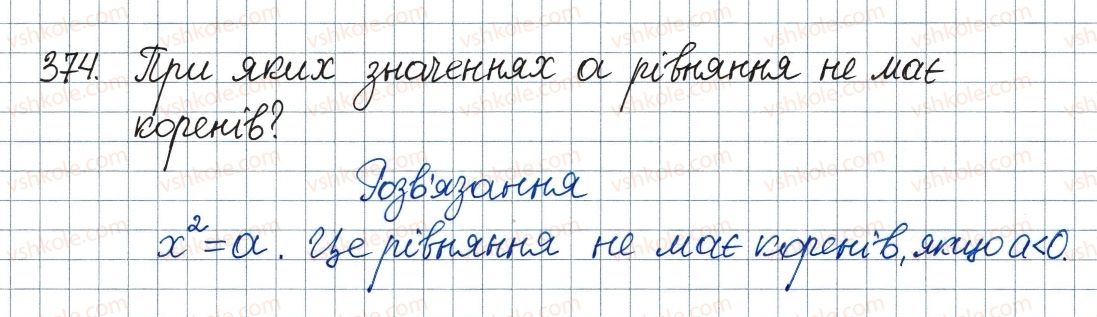 374. При яких значеннях a рівняння не має
коренів?
Розв'язання
x²=a. Це рівняння не має коренів, якщо a<0.